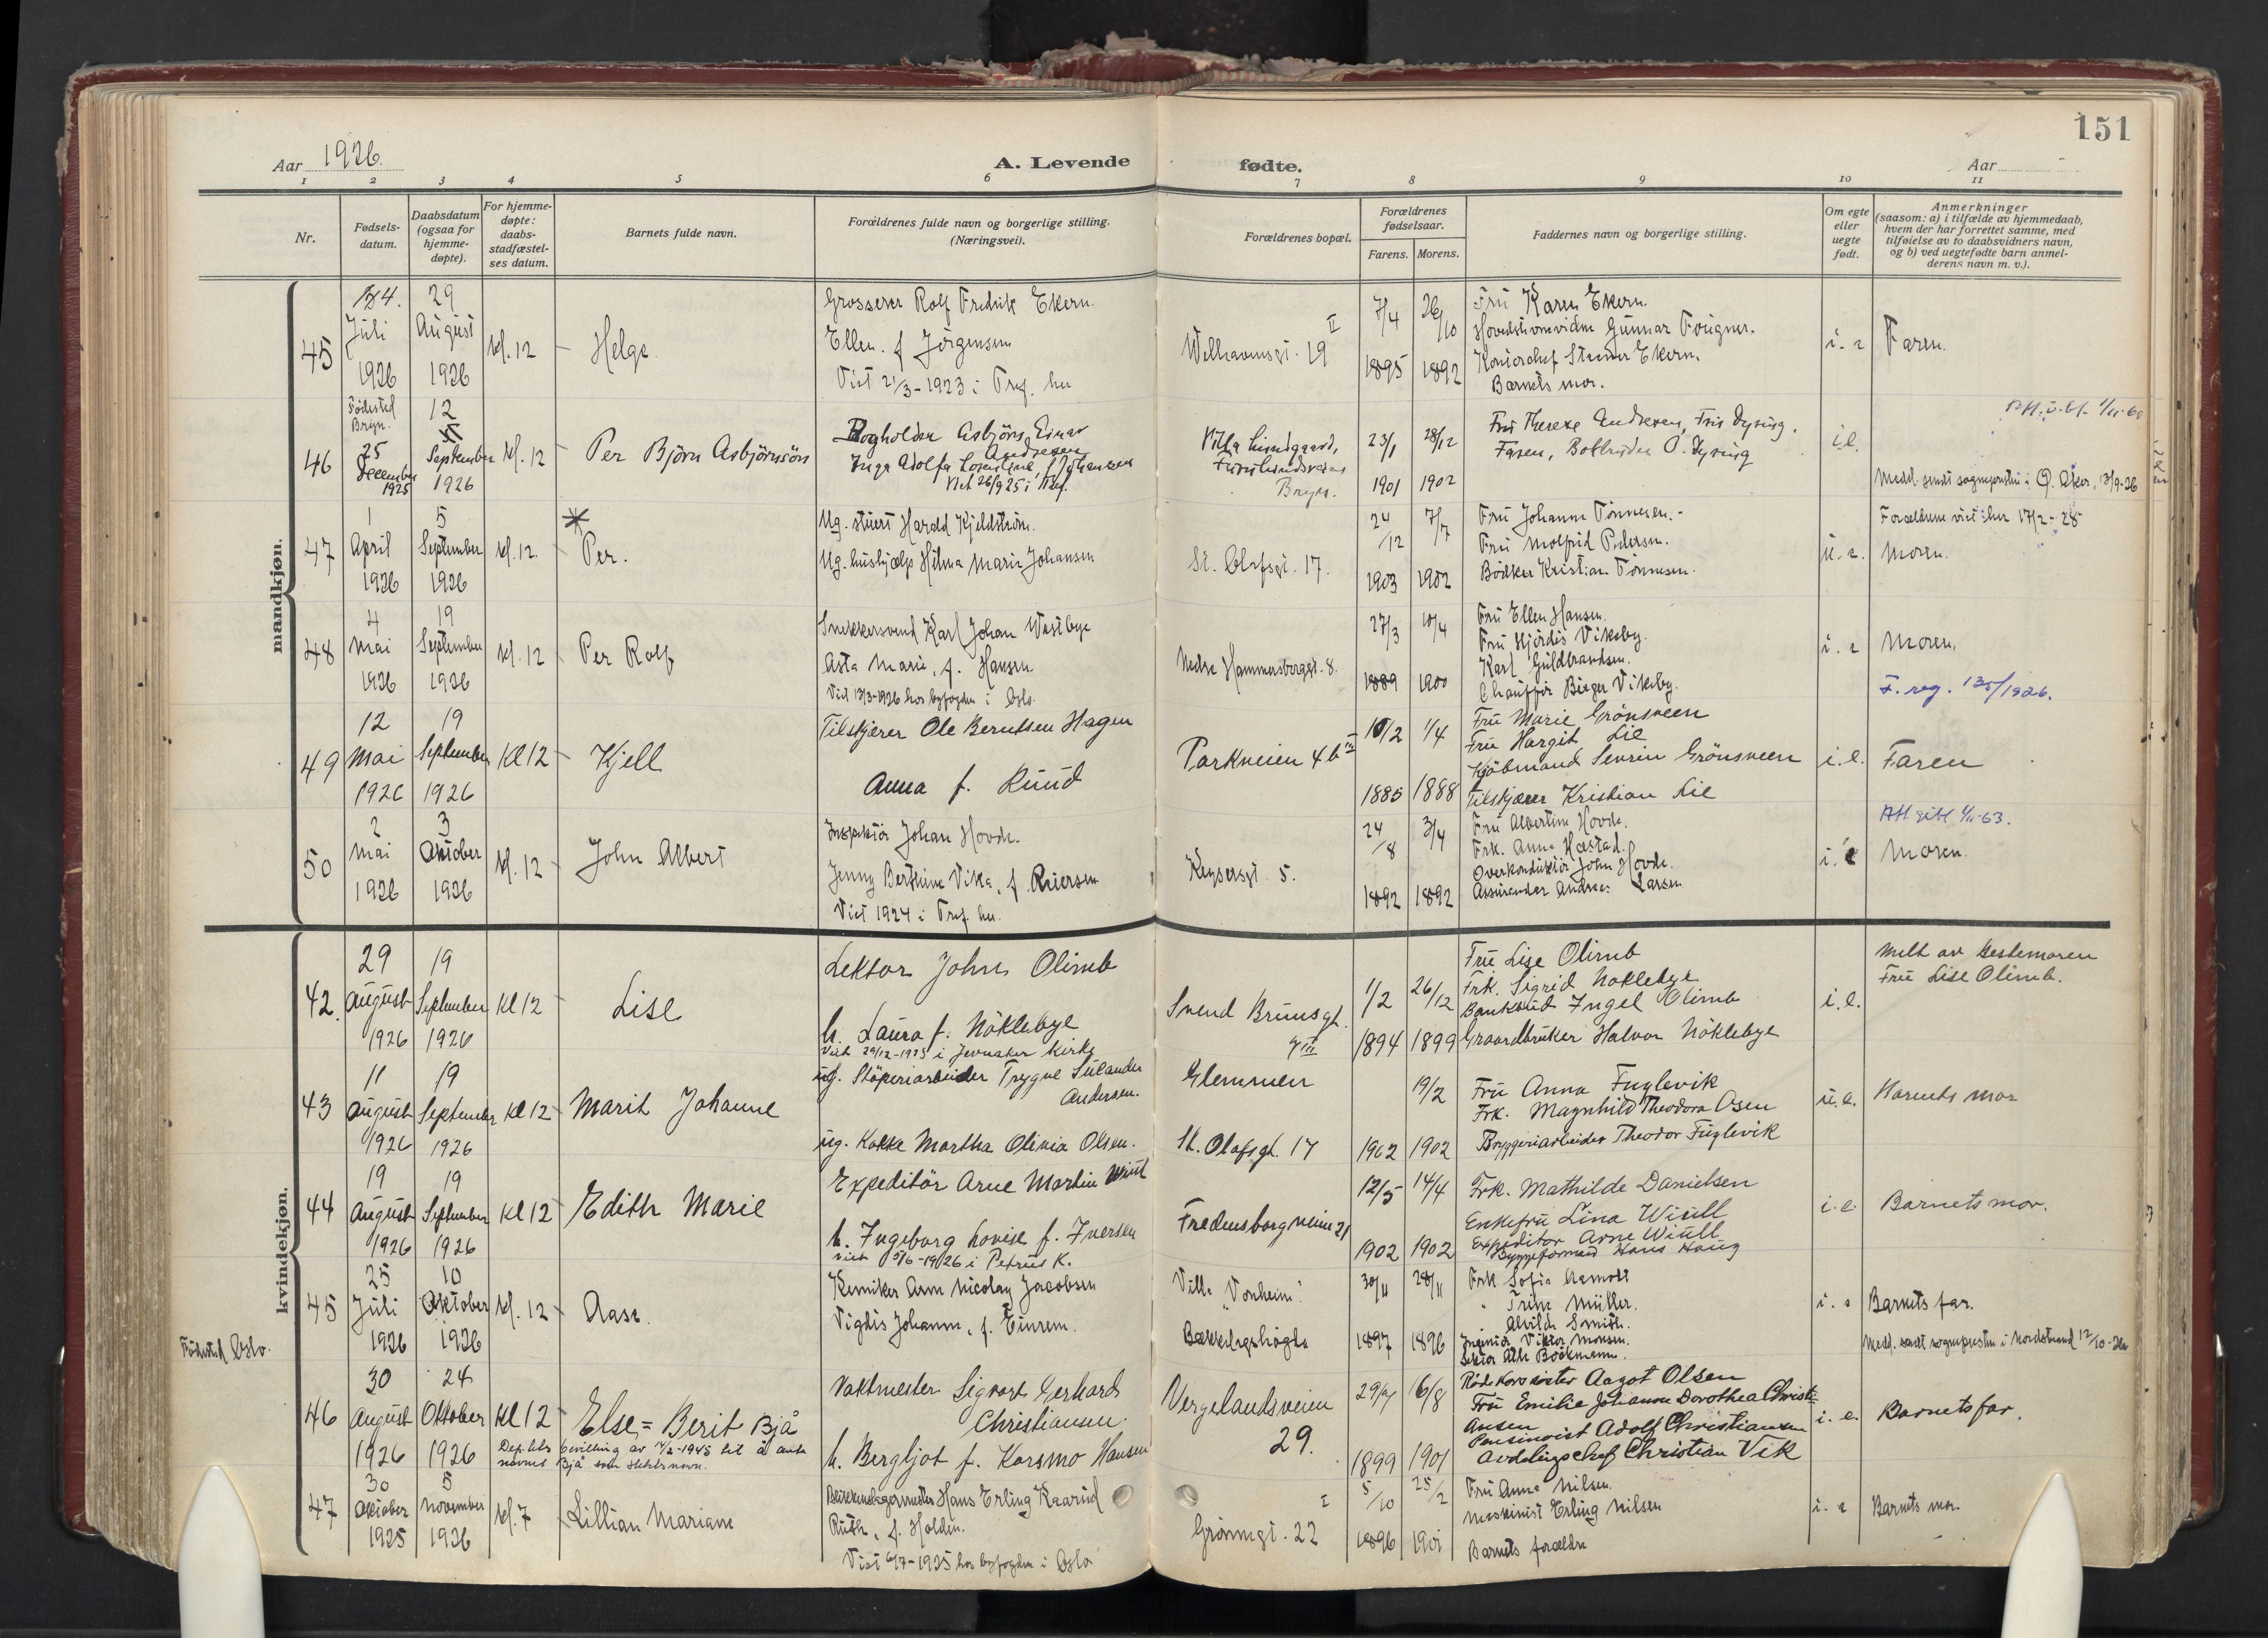 151
Aar 1926.
A. Levende
fødte.
Aar
1 2 3 4 5 6 7 8 9 10 11
Nr.
Fødsels-
datum.
Daabsdatum
(ogsaa for
hjemme-
døpte).
For hjemme-
døpte:
daabs-
stadfæstel-
ses datum.
Barnets fulde navn.
Forældrenes fulde navn og borgerlige stilling.
(Næringsvei).
Forældrenes bopæl.
Forældrenes
fødselsaar.
Farens. Morens.
Faddernes navn og borgerlige stilling.
Om egte
eller
uegte
født.
Anmerkninger
(saasom: a) i tilfælde av hjemmedaab,
hvem der har forrettet samme, med
tilføielse av to daabsvidners navn,
og b) ved uegtefødte barn anmel-
derens navn m. v.).
mandkjøn.
45
Juli
1926
29
August
1926
kl. 12
Helge
Grosserer Rolf Fredrik Ekern.
Ellen f. Jörgensen
Viet 21/3-1923 i Tref. her
Welhavensgt. 19 II
7/4
1895
26/10
1892
Fru Karen Ekern.
Gunnar Fougner.
Kontorchef Steener Ekern.
Barnets mor.
i. e
Faren.
46
Fødested
Bryn.
25
December
1925
12
September
1926
kl. 12
Per Björn Asbjörnsön
Bogholder Asbjörn Einar
Andresen
Inga Adolfa Lovendine, f. Johansen
Viet 26/9 25 i Tref.
Villa Lindgaard,
Bryn.
23/1
1901
28/12
1902
Fru Therese Andresen, Fru Dyring.
Faren, Dyring
i.e.
Medd. sendt sognepresten i Ö. Aker, 13/9-26
47
1
April
1926
5
September
1926
kl. 12.
Per.
Ug. stuert Harald Kjeldström.
Ug. hushjælp Hilma Marie Johansen
St. Olafsgt. 17.
24/12
1903
7/7
1902
Fru Johanne Tönnesen.
Fru Molfrid Pedersen.
Bödker Kristian Tönnesen.
u. e.
Forældrene viet her 17/2-28
Moren.
48
4
Mai
1926
19
September
1926
kl. 12
Per Rolf
Snekkersvend Karl Johan Westbye
Asta Marie, f. Hansen
Viet 13/3-1926 hos byfogden i Oslo.
Nedre Hammersborggt. 8.
27/3
1889
10/4
1900
Fru Ellen Hansen.
Fru Hjördis Vikeby.
Karl Guldbrandsen.
Chaufför Birger Vikeby.
i. e
Moren.
F. reg. 135/1926.
49
12
Mai
1926
19
September
1926
Kl 12
Kjell
Tilskjærer Ole Berntsen Hagen
Anna f. Ruud
Parkveien 4b III
10/2
1885
1/4
1888
Fru Marie Grönsveen
Fru Margit Lie
Kjöbmand Severin Grönsveen
Tilskjærer Kristian Lie
i. e.
Faren
50
2
Mai
1926
3
Oktober
1926
kl. 12
John Albert
Inspektör Johan Hovde.
Jenny Berthine Vika, f. Reiersen
Viet 1924 i Tref. her.
Keysersgt. 5.
24/8
1892
3/4
1892
Fru Albertine Hovde.
Frk. Anna Hæstad.
Overkonduktör John Hovde.
Assurandör Andreas Larsen
i. e
Moren.
kvindekjøn.
42.
29
August
1926
19
September
1926
Kl 12
Lise
Lektor Johns Olimb
h. Laura f. Nöklebye
Viet 29/12-1925 i Jevnaker kirke
Svend Bruunsgt.
1/2
1894
26/12
1899
Fru Lise Olimb
Frk. Sigrid Nöklebye
Ingel Olimb
Graardbruker Halvor Nöklebye
i. e.
Meldt av Bestemoren
Fru Lise Olimb.
43
11
August
1926
19
September
1926
Kl 12
Marit Johanne
ug. Stöperiarbeider Trygve Selander
Andersen.
ug. Kokke Martha Olivia Olsen.
Glemmen
St. Olafsgt. 17
1902
19/2
1902
Fru Anna Fuglevik
Frk. Magnhild Theodora Osen
Bryggeriarbeider Theodor Fuglevik
u. e.
Barnets mor
44
19
August
1926
19
September
1926
Kl 12
Edith Marie
Expeditör Arne Martin Wiull
h. Ingeborg Lovise f. Iversen
viet 5/6-1926 i Petrus K.
Fredensborgveien 21
12/5
1902
14/4
1902
Frk. Mathilde Danielsen
Enkefru Lina Wiull
Expeditör Arne Wiull
Byggeformand Hans Haug
i. e.
Barnets mor.
45
Födested Oslo.
25
Juli
1926
10
Oktober
1926
kl. 12
Aase
Kemiker Arne Nicolay Jacobsen
Vigdis Johanne, f. Einrem.
Villa "Vonheim".
Bækkelagshögda
30/11
1897
28/11
1896
Frk. Sofie Aamodt
" Trine Müller.
" Alvilde Smith.
Ingeniör Viktor Monsen.
Lektor Atle Böckmann.
i. e
Barnets far.
Medd. sendt sognepresten i Nordstrand 12/10-26
46
30
August
1926
24
Oktober
1926
Kl 12
Else = Berit Bjå
Dep.tets bevilling av 14/2-1945 til å anta
navnet Bjå som slektsnavn.
Vaktmester Sigvart Gerhard
Christiansen.
h. Bergljot f. Korsmo Hansen
Vergelandsveien
29.
1899
6/8
1901
Röde Kors söster Aagot Olsen
Fru Emilie Johanne Dorothea Christi-
ansen
Pensionist Adolf Christiansen
Avdelingschef Christian Vik
i. e.
Barnets far.
47
30
Oktober
1925
5
November
1926
kl. 7
Lillian Mariane
Blikkenslagermester Hans Erling Kaarud
Ruth, f. Holden.
Viet 6/7-1925 hos byfogden i Oslo
Grönnegt. 22 I
5/10
1896
25/2
1901
Fru Anna Nilsen.
Maskinist Erling Nilsen
Barnets forældre
i. e
Barnets mor.